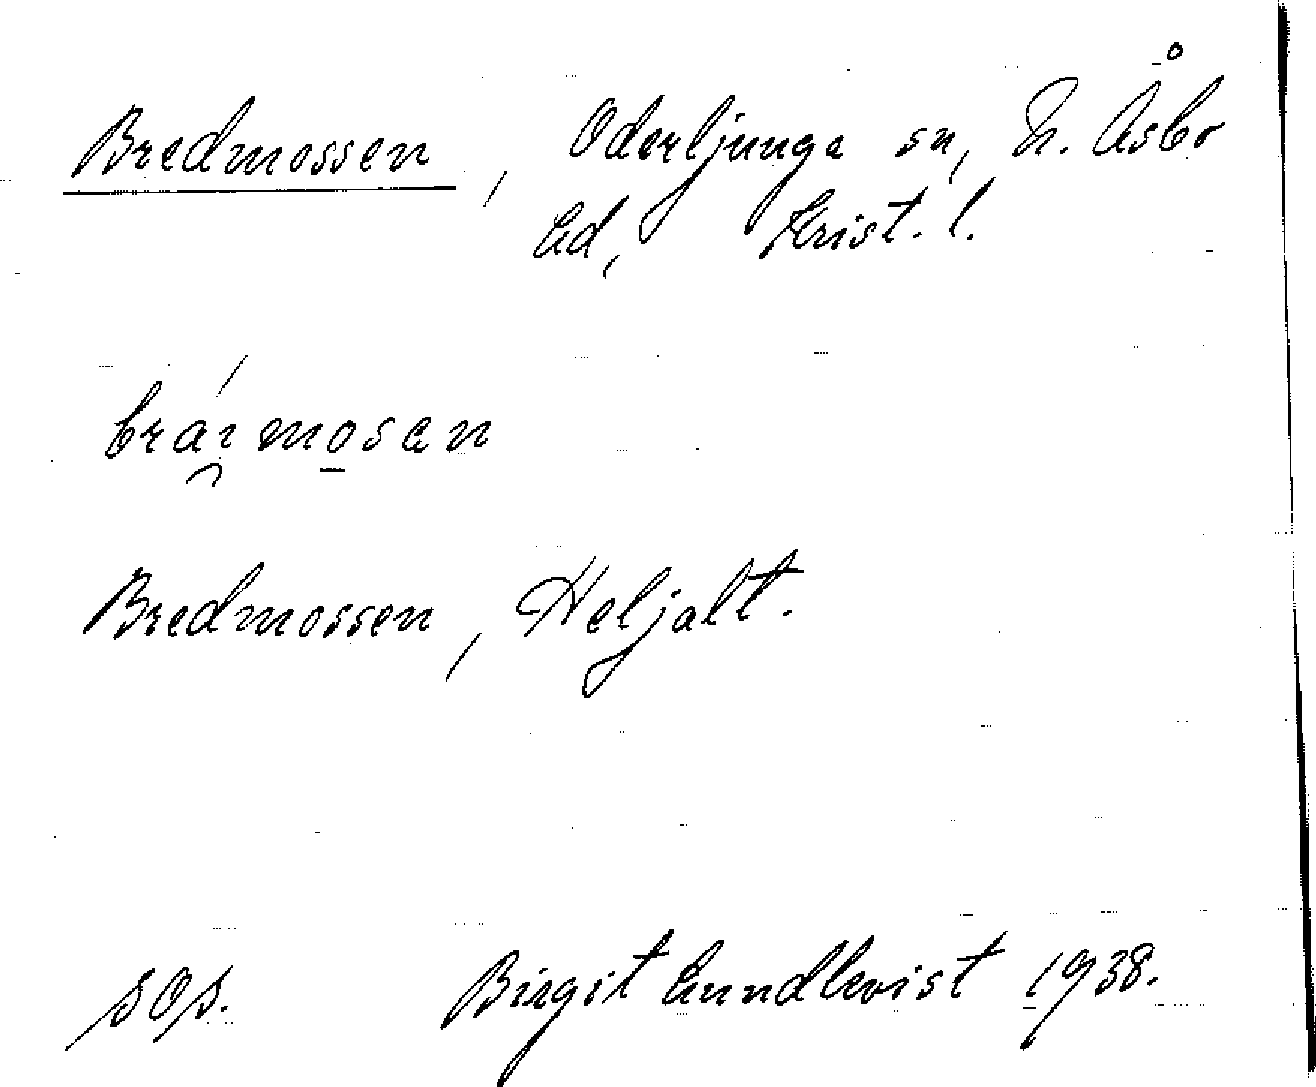 Bredmossen, Oderljunga sn, N. Åsbo
hd, Krist. l.
Bredmossen, Heljalt.
sop. Birgit Lundkvist 1938.